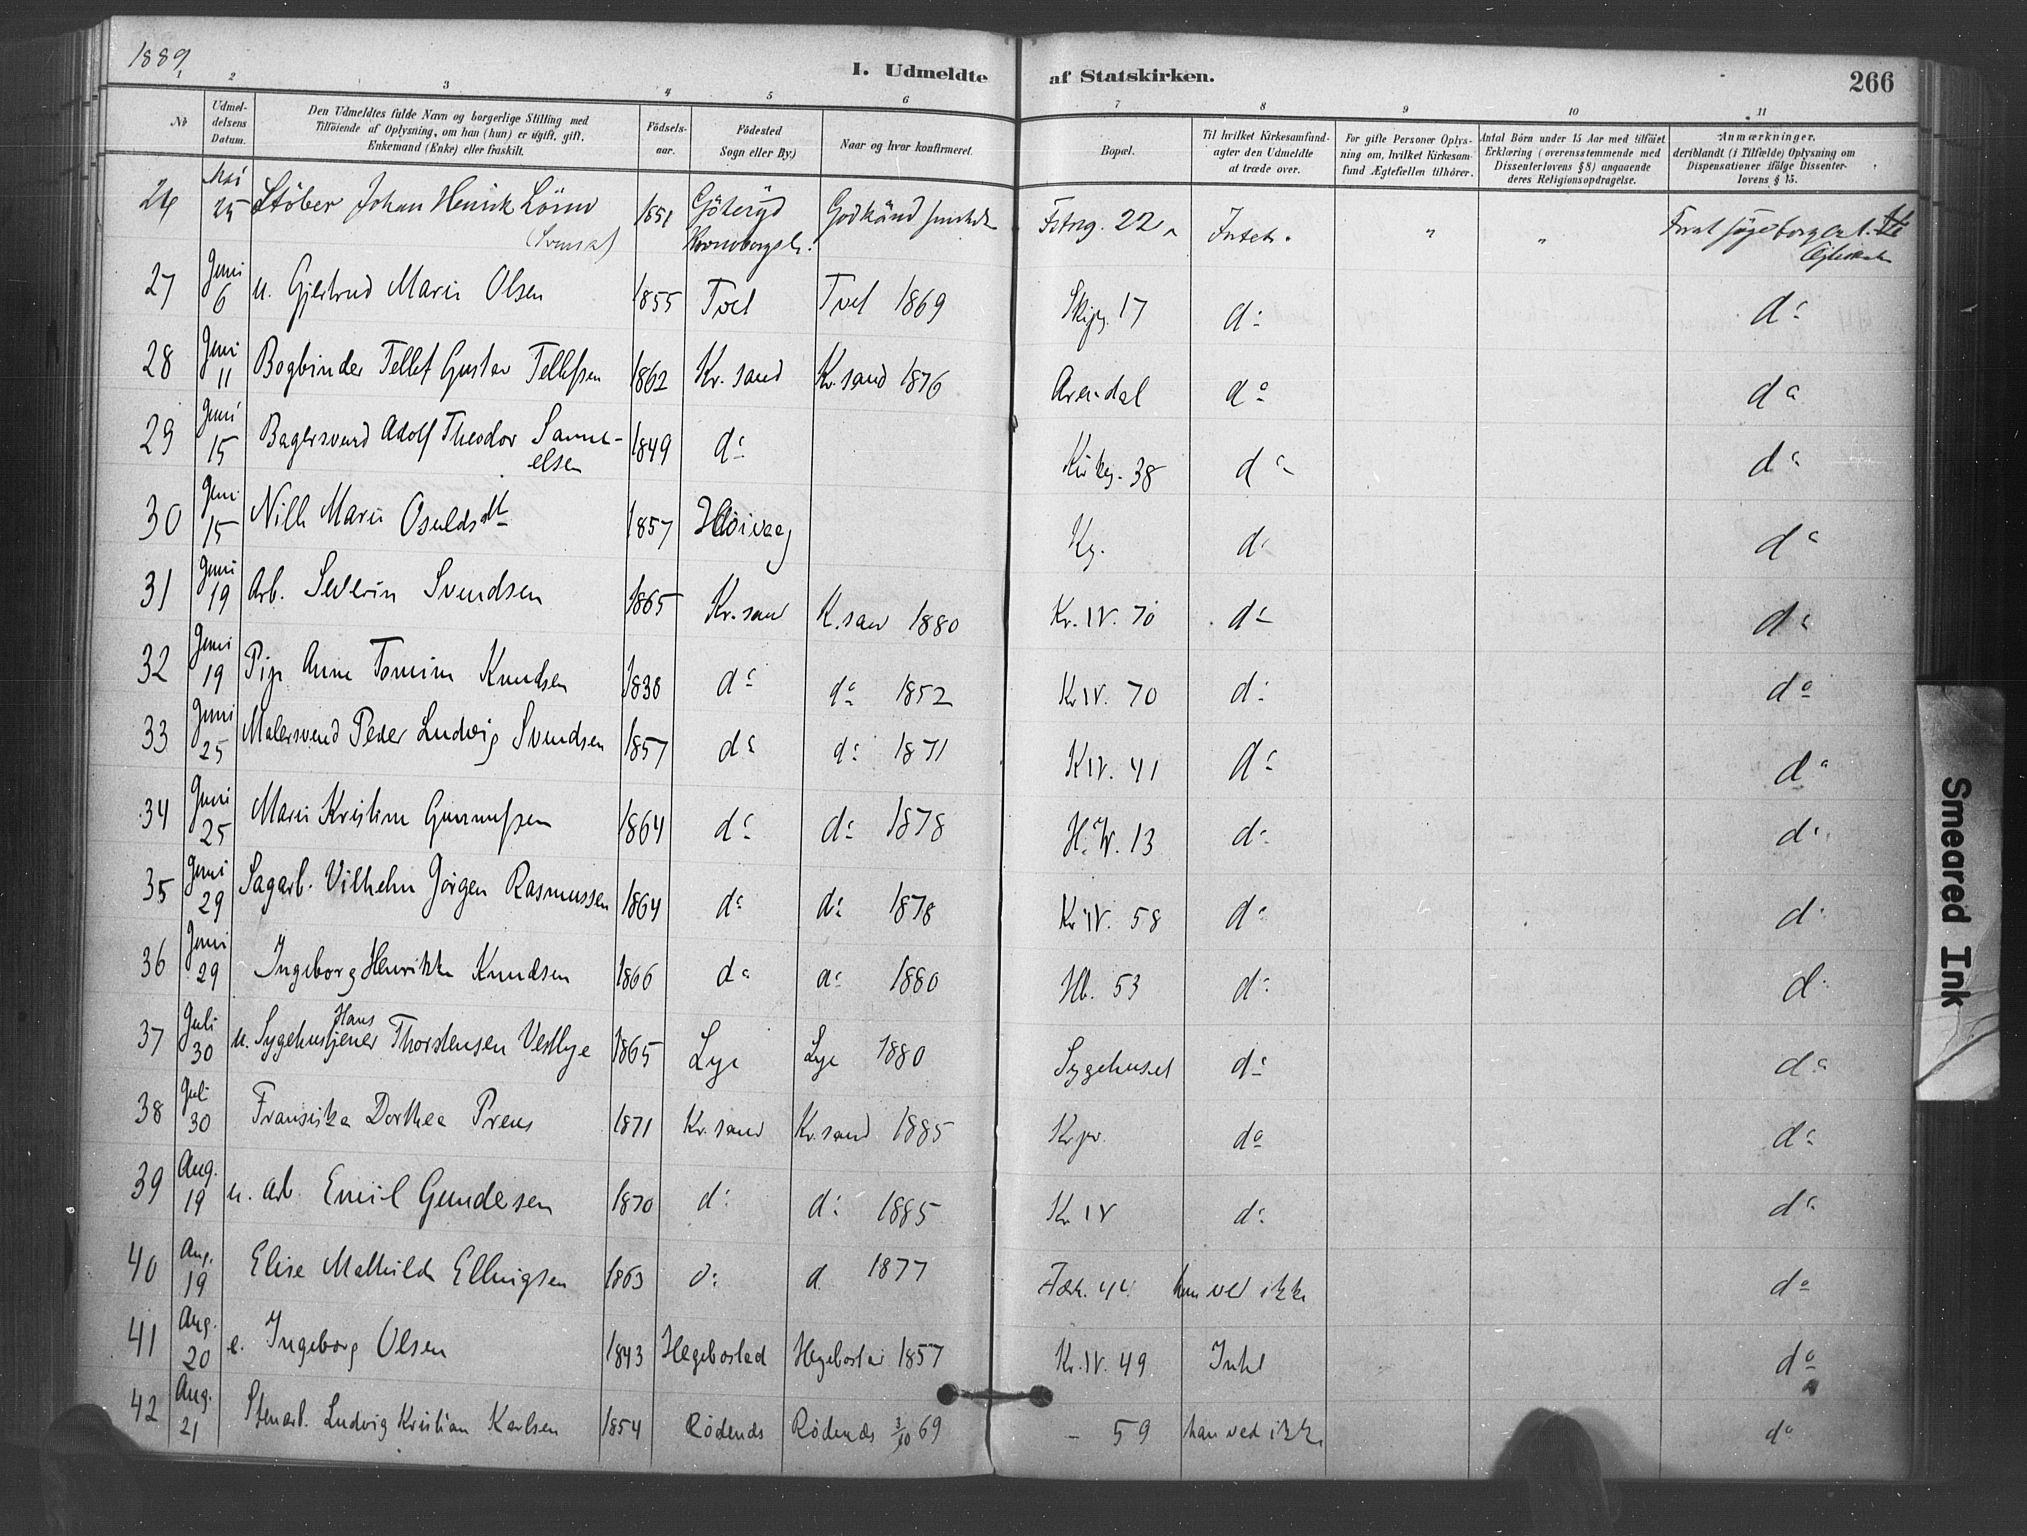 1889
I. Udmeldte af Statskirken. 266
1 2 3 4 5 6 7 8 9 10 11
No
Udmeldelsens Datum.
Den Udmeldtes fulde Navn og borgerlige Stilling med
Tilføiende af Oplysning, om han (hun) er ugift, gift,
Enkemand (Enke) eller fraskilt.
Fødselsaar.
Fødested
Sogn eller By.)
Naar og hvor konfirmeret.
Bopæl.
Til hvilket Kirkesamfund-
agter den Udmeldte
at træde over.
For gifte Personer Oplys-
ning om, hvilket Kirkesam-
fund Ægtefællen tilhører.
Antal Børn under 15 Aar med tilføiet
Erklæring (overensstemmende med
Dissenterlovens § 8) angaaende
deres Religionsopdragelse.
Anmærkninger,
deriblandt (i Tilfælde) Oplysning om
Dispensationer ifølge Dissenter-
lovens § 15.
26 Mai 25 Støber Johan Henrik 1851 Göteryd Godkänd 22 Intet. " "
27 Juni 6 u. Gjertrud Marie Olsen 1855 Tvet Tvet 1869 Skipg. 17 do do
28 Juni 11 Bogbinder Tellef Gustav Tellefsen 1862 Kr.sand Kr.sand 1876 Arendal do do
29 Juni 15 Bagersvend Adolf Theodor Samu-
elsen 1849 do Kirkeg. 38 do do
30 Juni 15 Marie Osuldsdt 1857 Høivaag Kg. do do
31 Juni 19 Arb. Severin Svendsen 1865 Kr.sand K.sand 1880 Kr. IV. 70 do do
32 Juni 19 Pige Anne Tomine Knudsen 1838 do do 1852 Kr IV. 70 do do
33 Juni 25 Malersvend Peder Ludvig Svendsen 1857 do do 1871 K IV. 41 do do
34 Juni 25 Marie Kristine Gunnufsen 1864 do do 1878 13 do do
35 Juni 29 Sagarb. Vilhelm Jörgen Rasmussen 1864 do do 1878 Kr IV. 58 do do
36 Juni 29 Ingeborg Henrikke Knudsen 1866 do do 1880 Hb. 53 do do
37 Juli 30 u. Sygehustjener Hans Thorstensen Vestlye 1865 Lye Lye 1880 Sygehuset do do
38 Juli 30 Fransiska Dorthea Preus 1871 Kr.sand Kr.sand 1885 do do
39 Aug. 19 u. Arb. Emil Gundersen 1870 do do 1885 Kr IV do do
40 Aug. 19 Elise Mathilde Ellingsen 1863 do d 1877 44 hun ved ikke do
41 Aug. 20 e. Ingeborg Olsen 1843 Hegebostad Hegebostad 1857 Kr. IV. 49 Intet do
42 Aug. 21 Stenarb. Ludvig Kristian Karlsen 1854 Rödenæs Rödenæs 3/10 69 - 59 han ved ikke do
Smeared Ink